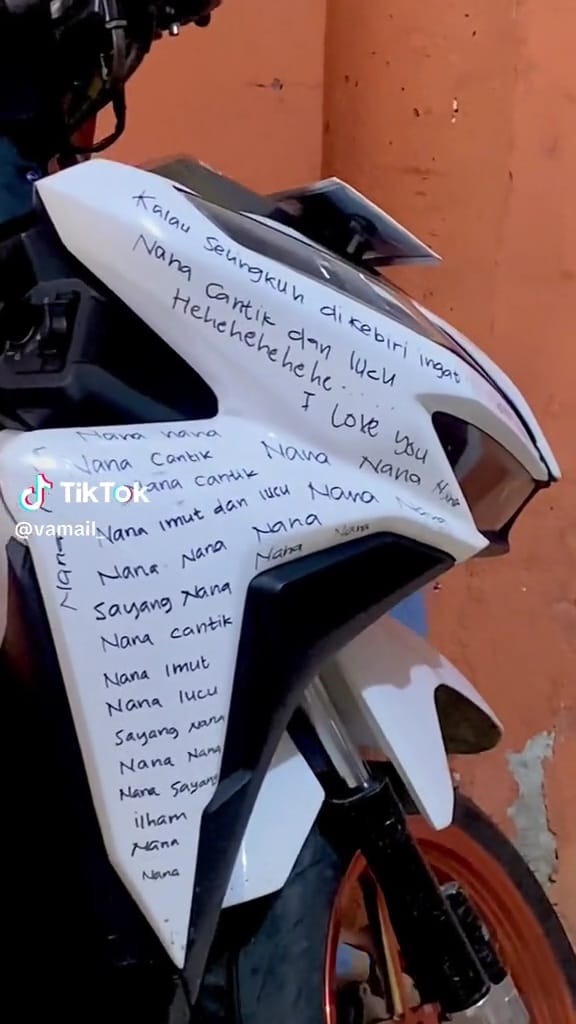 Kalau Seungkuh dikebiri ingat
Nana Cantik dan lucu
Hehehehehehe.....
I love you
Nana nana
Nana Cantik Nana Nana Nana
Nana Cantik
Nana imut dan lucu Nana Nana
Nana Nana Nana
Nana Nana
Sayang Nana
Nana cantik
Nana Imut
Nana lucu
Sayang Nana
Nana Nana
Nana Sayang
ilham
Nana
Nana
Nana
TikTok
@vamail_